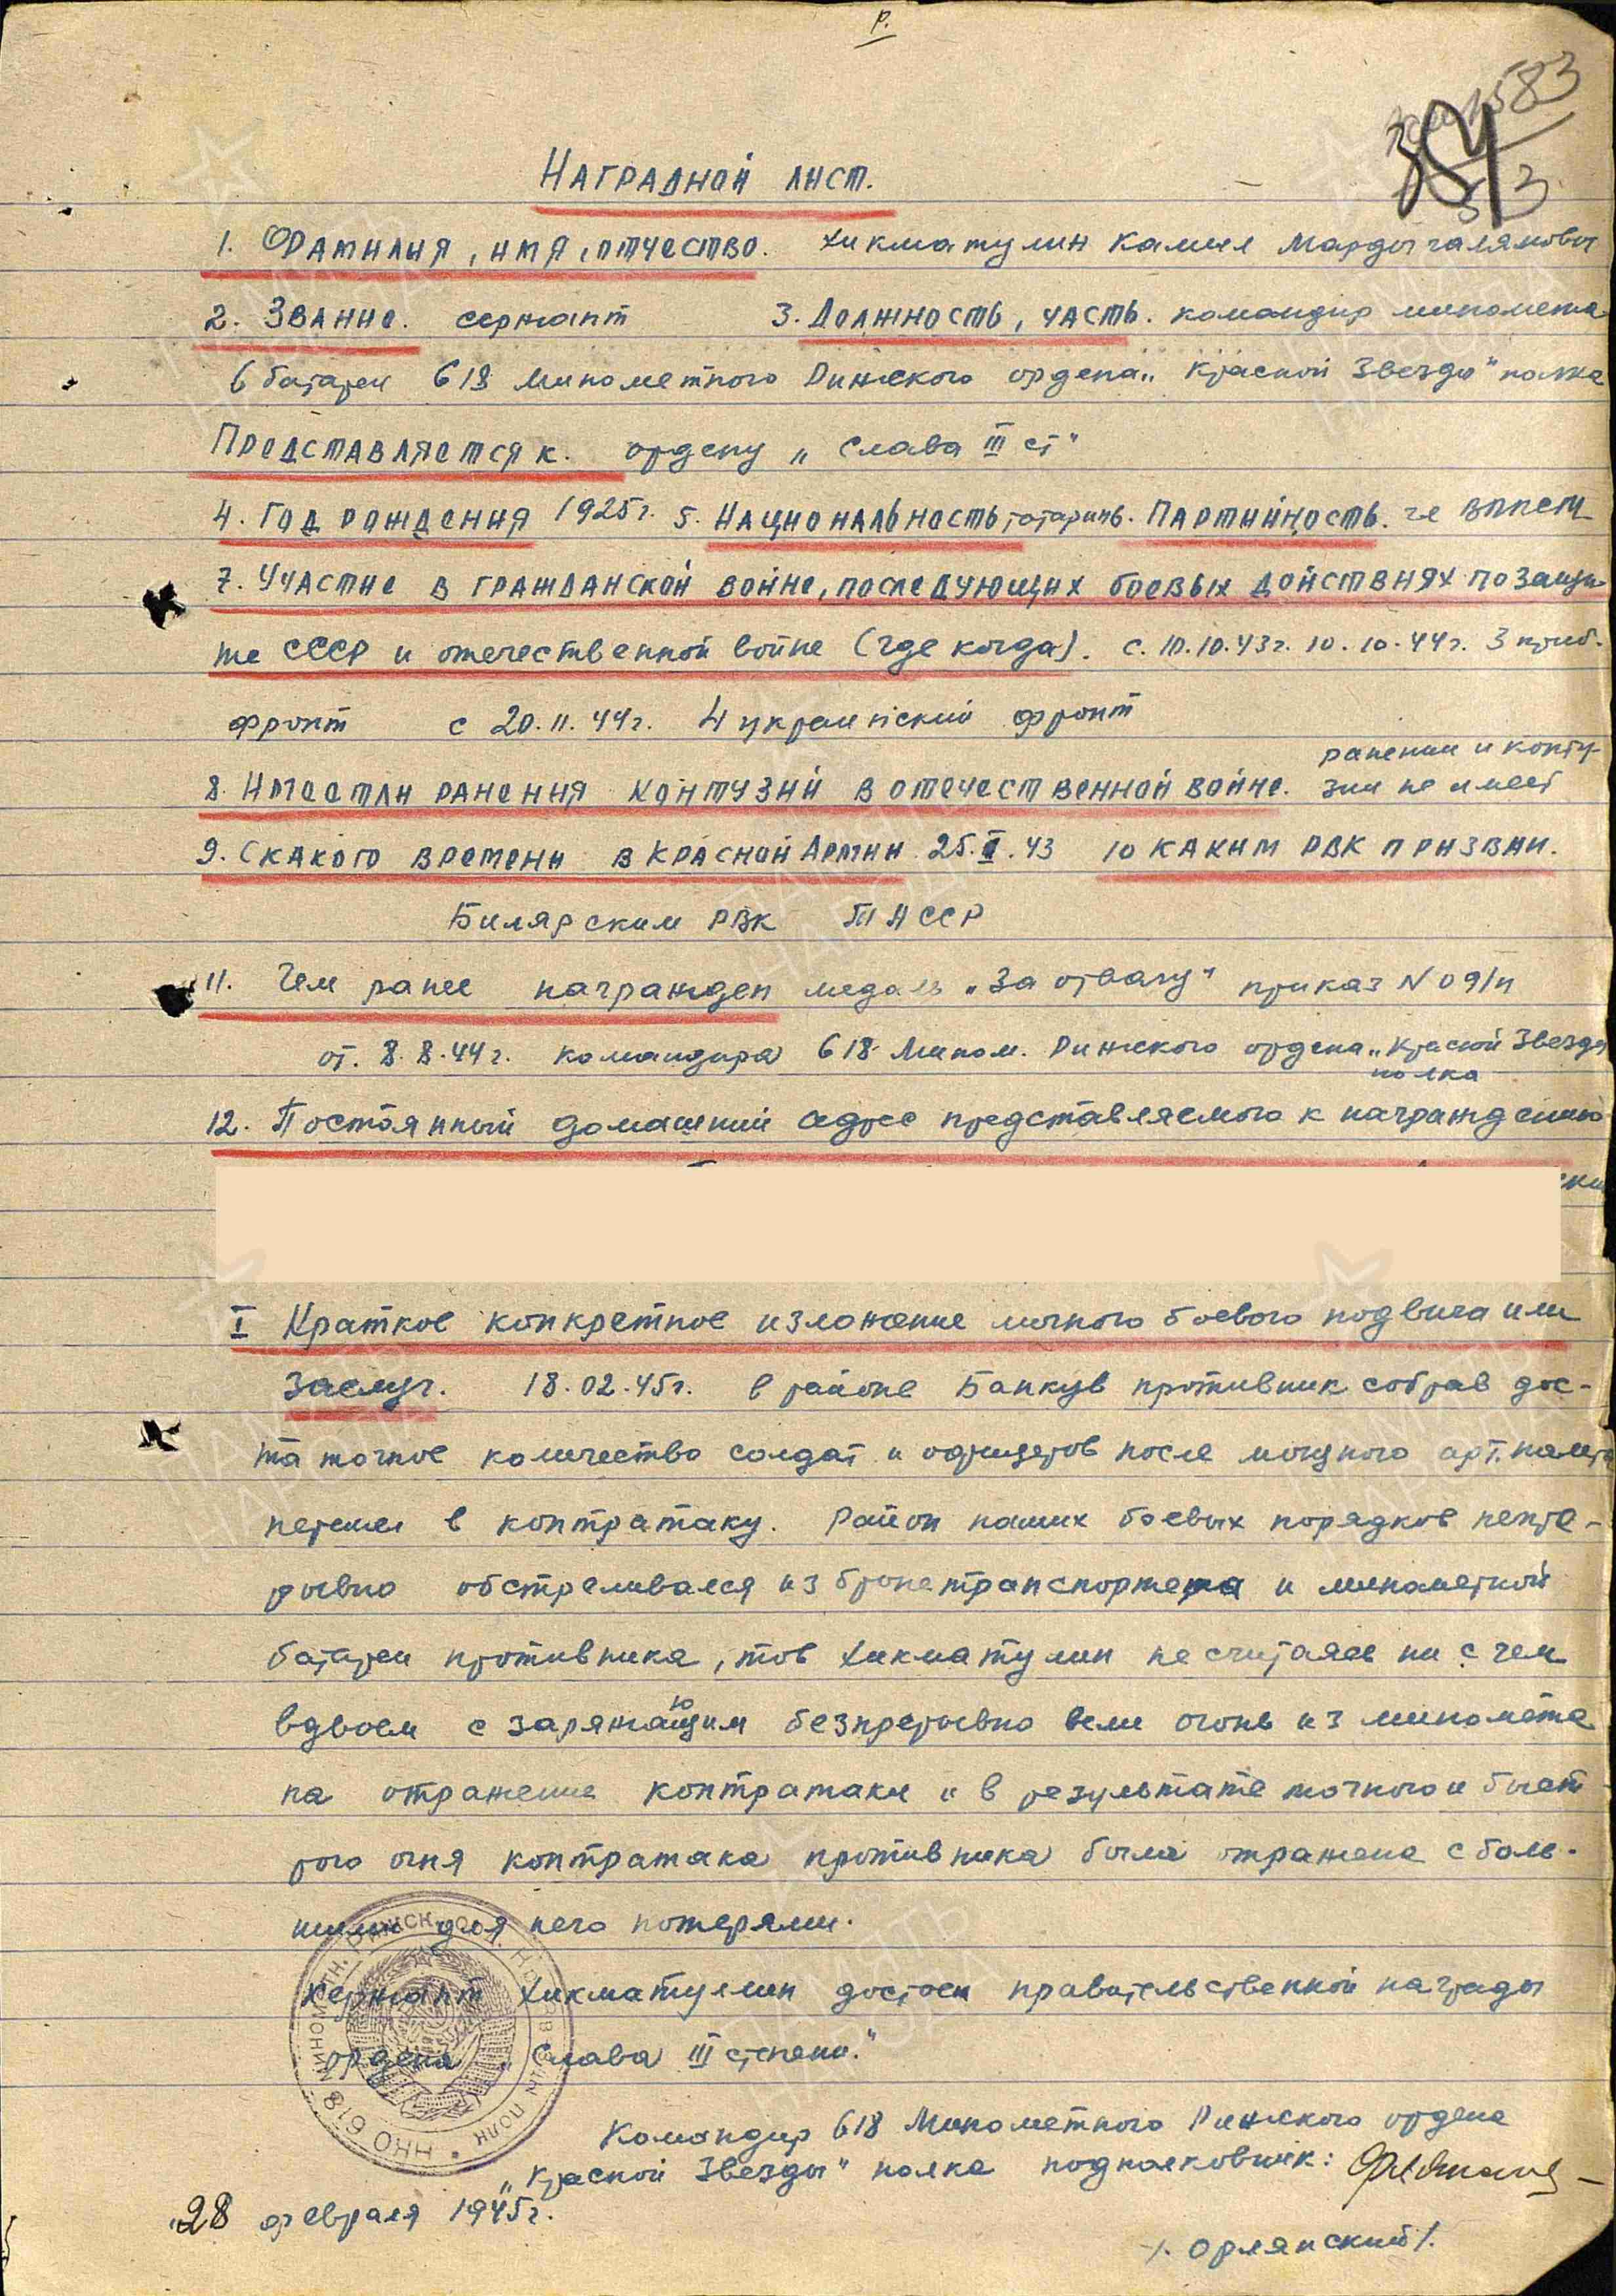 р.
НАГРАДНОЙ ЛИСТ.
1. ФАМИЛИЯ, ИМЯ, ОТЧЕСТВО. Хикматулин Камил Мардыгалямович
2. ЗВАНИЕ. сержант 3. ДОЛЖНОСТЬ, ЧАСТЬ. командир миномета
6 батареи 618 Минометного Рижского ордена „Красной Звезды" полка
ПРЕДСТАВЛЯЕТСЯ К. ордену „Слава III ст"
4. ГОД РОЖДЕНИЯ 1925г. 5. НАЦИОНАЛЬНОСТЬ татарин 6. ПАРТИЙНОСТЬ. чл ВЛКСМ
7. УЧАСТИЕ В ГРАЖДАНСКОЙ ВОЙНЕ, ПОСЛЕДУЮЩИХ БОЕВЫХ ДЕЙСТВИЯХ ПО ЗАЩИ-
ТЕ СССР и отечественной войне (где когда). с. 10.10.43г. 10.10.44г. 3 приб.
фронт с 20.11.44г. 4 украинский фронт
8. ИМЕЕТ ЛИ РАНЕНИЯ КОНТУЗИЙ В ОТЕЧЕСТВЕННОЙ ВОЙНЕ. ранении и конту-
зии не имеет
9. С КАКОГО ВРЕМЕНИ В КРАСНОЙ АРМИИ 25. .43 10 КАКИМ РВК ПРИЗВАН.
Билярским РВК ТАССР
11. Чем ранее награжден медаль „За отвагу" приказ N 09/н
от. 8.8.44г. командира 618 Мином. Рижского ордена „Красной Звезды
полка
12. Постоянный домашний адрес представляемого к награждению
I Краткое конкретное изложение личного боевого подвига или
заслуг. 18.02.45г. в районе Банкув противник собрав дос-
таточное количество солдат и офицеров после мощного арт. налета
перешел в контратаку. Район наших боевых порядков непре-
рывно обстреливался из бронетранспортера и минометной
батареи противника, тов Хикматулин не считаясь ни с чем
вдвоем с заряжающим безпрерывно вели огонь из миномета
на отражение контратаки и в результате точного и быст
рого огня контратака противника была отражена с боль-
шими для него потерями.
Сержант Хикматулин достоен правительственной награды
ордена „Слава III степени."
НКО 618 МИНОМЕТН. ПОЛК
Командир 618 Минометного Рижского ордена
„Красной Звезды" полка подполковник:
28 февраля 1945г.
/. Орлянский /.
ПАМЯТЬ НАРОДА